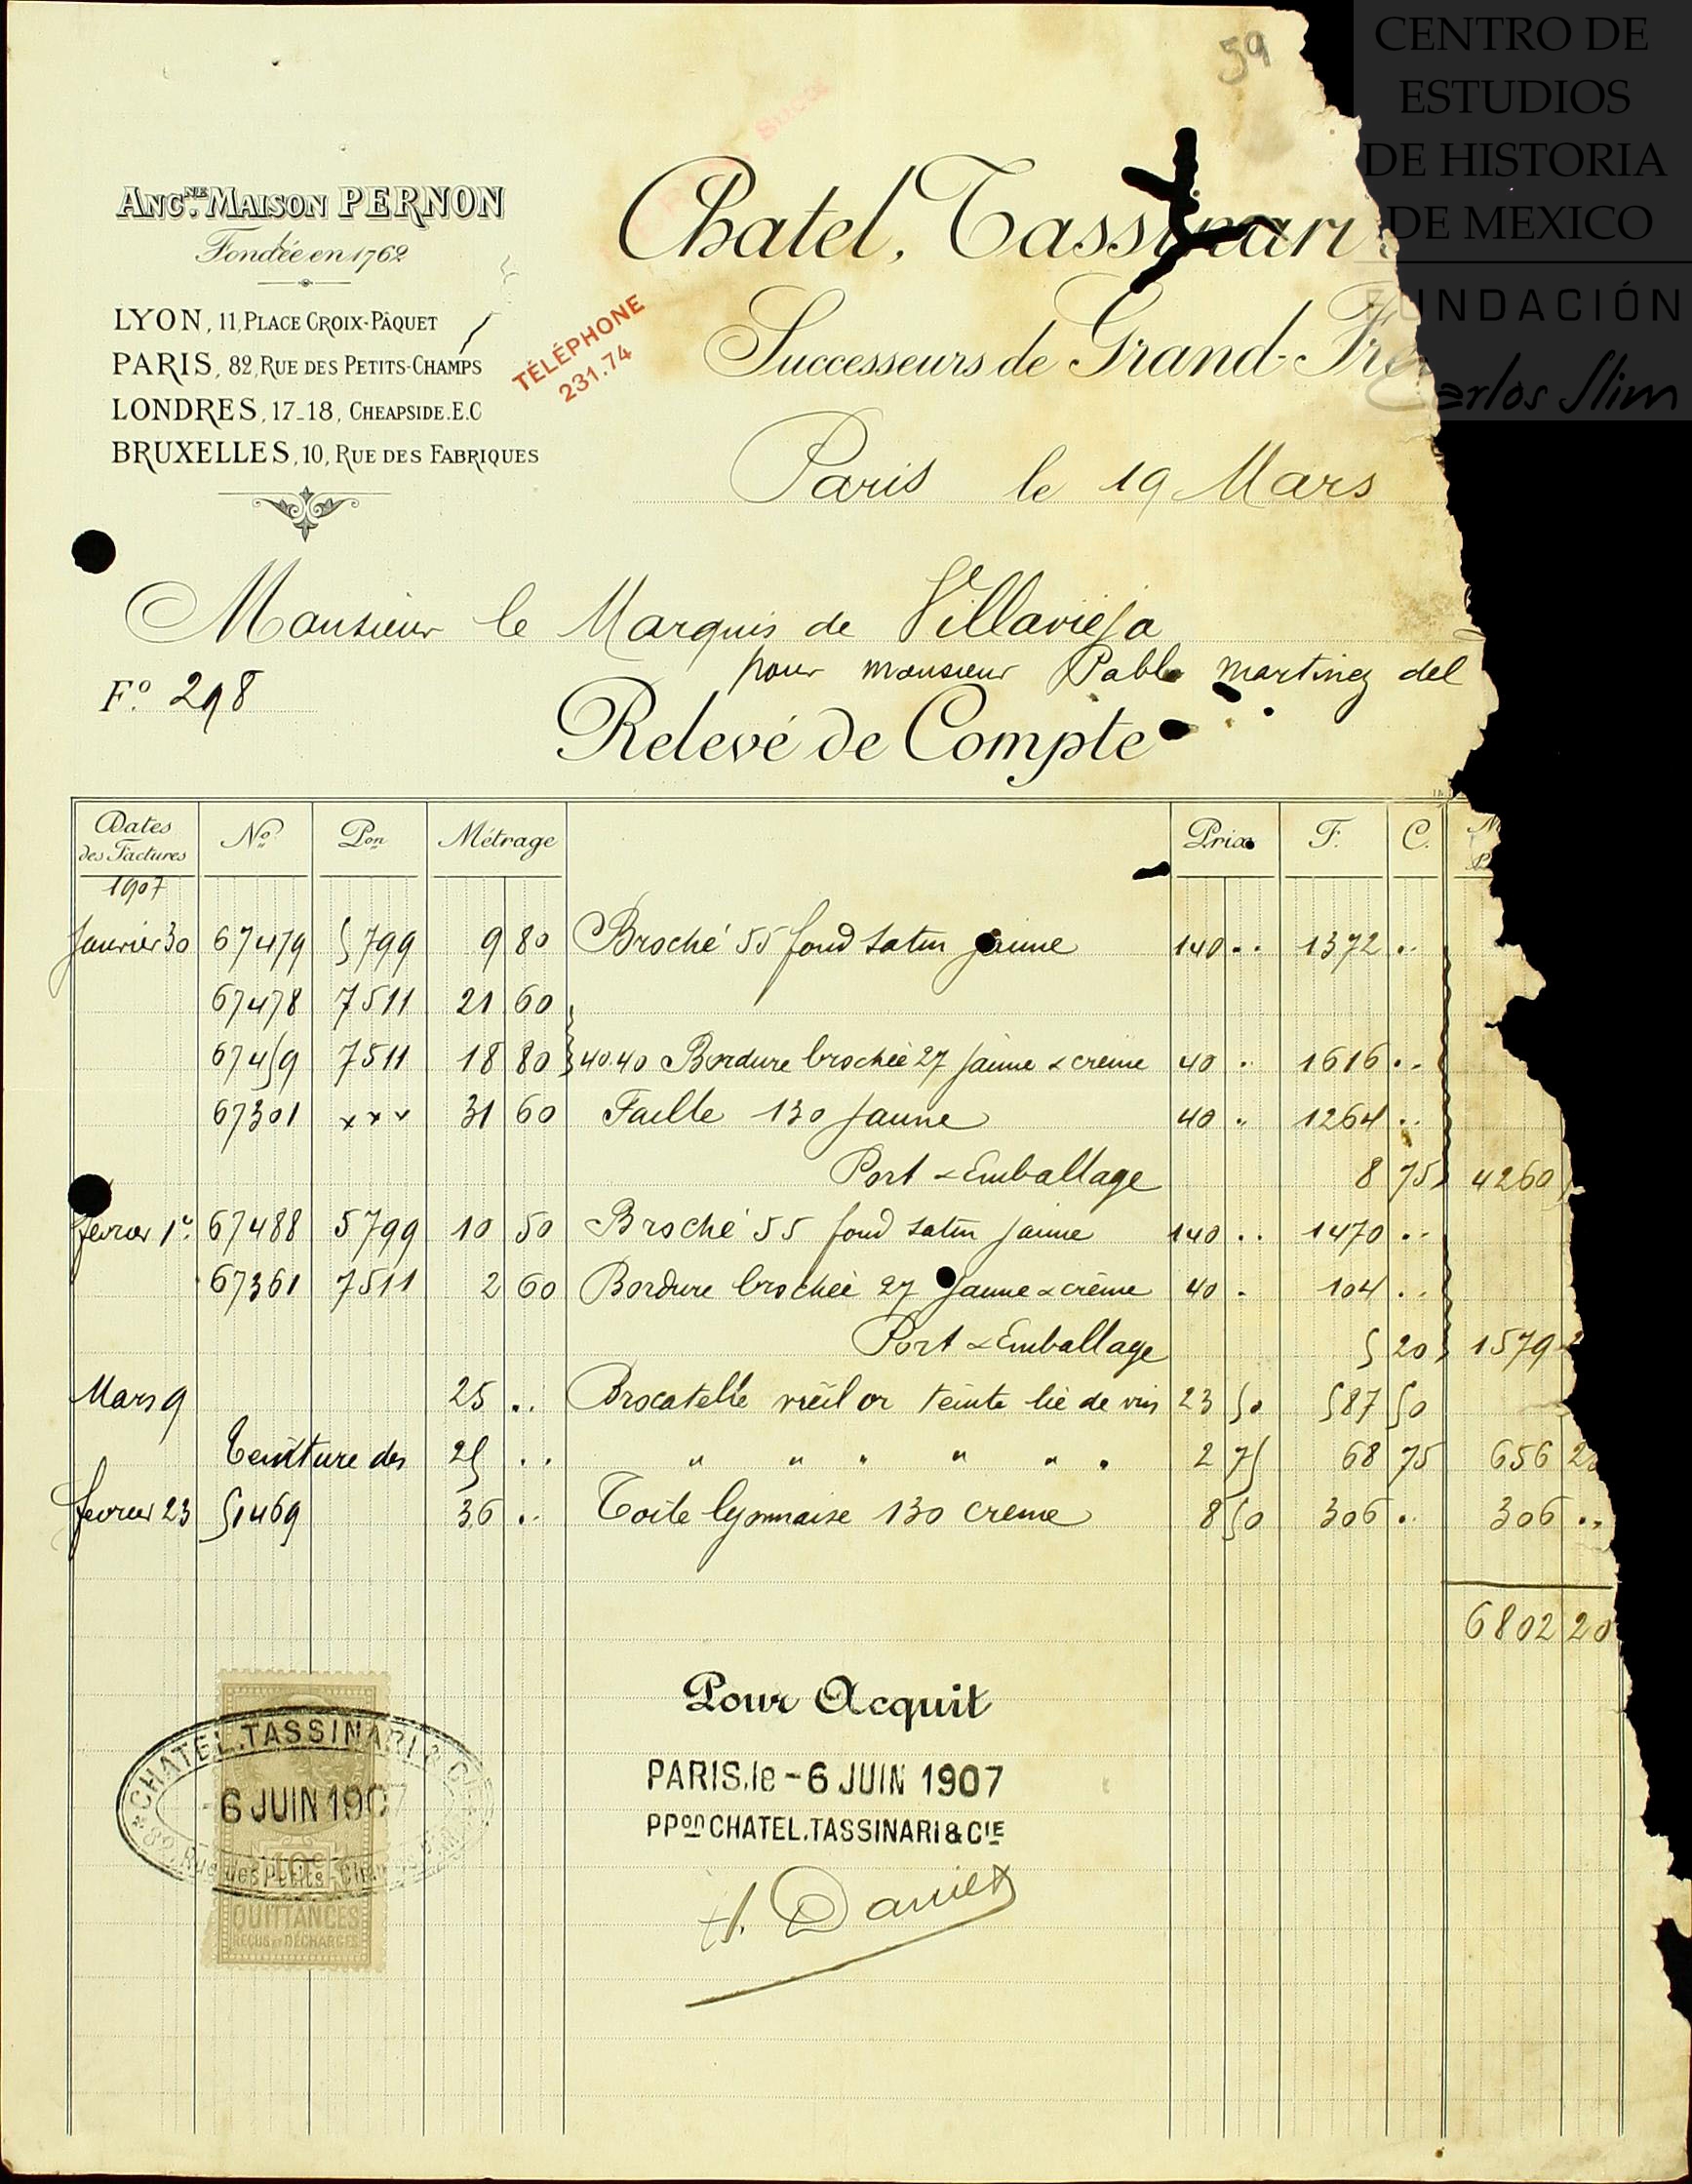 59
CENTRO DE
ESTUDIOS
DE HISTORIA
DE MEXICO
FUNDACIÓN
Carlos Slim
ANC.NE MAISON PERNON
Fondée en 1762
LYON, 11, PLACE CROIX-PÂQUET
PARIS, 82, RUE DES PETITS-CHAMPS
LONDRES, 17-18, CHEAPSIDE.E.C
BRUXELLES, 10, RUE DES FABRIQUES
TÉLÉPHONE
231.74
Chatel, Tassinari
Successeurs de Grand-Frè
Paris le 19 Mars
Monsieur le Marquis de Villavieja
pour monsieur Pablo Martinez del
F.o 298
Relevé de Compte
Dates des Factures No Pon Métrage Prix F. C.
1907
Janvier 30 67479 5799 9 80 Broché 55 fond satin jaune 140 .. 1372 ..
67478 7511 21 60
67459 7511 18 80 } 40.40 Bordure brochée 27 jaune & crème 40 .. 1616 ..
67301 xxx 31 60 Faille 130 jaune 40 .. 1264 ..
Port & Emballage 8 75 4260
février 1er 67488 5799 10 50 Broché 55 fond satin jaune 140 .. 1470 ..
67361 7511 2 60 Bordure brochée 27 jaune & crème 40 . 104 ..
Port & Emballage 5 20 1579 2
Mars 9 25 .. Brocatelle vieil or teinte lie de vin 23 50 587 50
" Teinture des 25 .. " " " " " " 2 75 68 75 656 25
février 23 51469 36 .. Toile lyonnaise 130 crème 8 50 306 .. 306 ..
6802 20
Pour Acquit
PARIS, le -6 JUIN 1907
PPon CHATEL.TASSINARI & CIE
CHATEL.TASSINARI & CIE
-6 JUIN 1907
82, Rue des Petits-Champs
10c
QUITTANCES
REÇUS ET DÉCHARGES